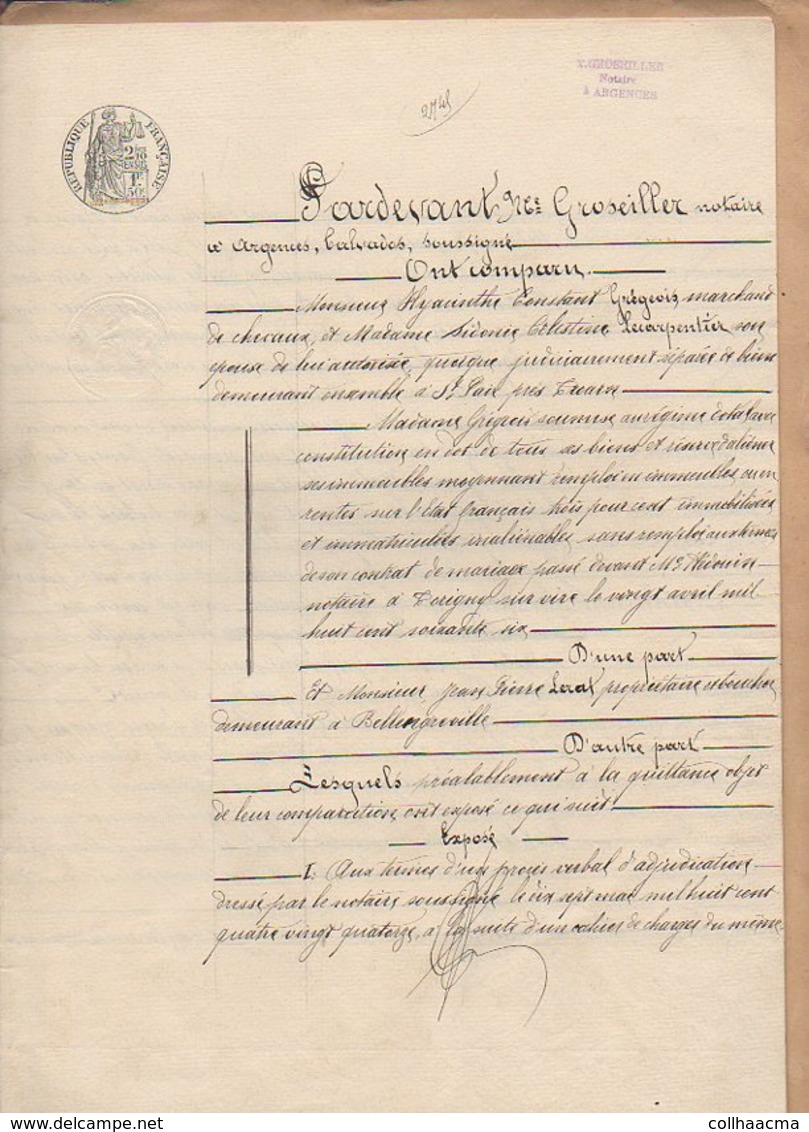 X. GROSEILLER
Notaire
à ARGENCES
2745
RÉPUBLIQUE FRANÇAISE
2/10 EN SUS
1F 50C
Pardevant Me Groseiller notaire
à Argences, Calvados, soussigné
Ont comparu
Monsieur Hyacinthe Constant Grégeois, marchand
de chevaux, et Madame Sidonie Célestine Lecarpentier son
épouse de lui autorisée, quoique judiciairement séparée de biens
demeurant ensemble à St Pair près Troarn
Madame Grégeois soumise au régime dotal avec
constitution en dot de tous ses biens et réserve d'aliéner
ses immeubles moyennant remploi en immeubles ou en
rentes sur l'État français trois pour cent immobilisées
et immatriculées inaliénables, sans remploi aux termes
de son contrat de mariage passé devant Me Hédouin
notaire à Torigny sur vire le vingt avril mil
huit cent soixante six
D'une part
Et Monsieur Jean Pierre Lerat, propriétaire et boucher
demeurant à Bellengreville
D'autre part
Lesquels préalablement à la quittance objet
de leur comparution, ont exposé ce qui suit
Exposé
I: Aux termes d'un procès verbal d'adjudication
dressé par le notaire soussigné le dix sept mai mil huit cent
quatre vingt quatorze, à la suite d'un cahier de charges du même
collhaacma